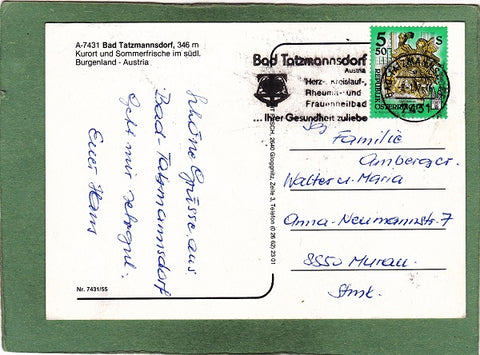 A-7431 Bad Tatzmannsdorf, 346 m
Kurort und Sommerfrische im südl.
Burgenland - Austria
Schöne Grüsse aus
Bad-Tatzmannsdorf
Geht mir sehr gut.
Euer Hans
Nr. 7431/55
SCH, 2640 Gloggnitz, Zeile 3, Telefon (0 26 62) 23 01
Bad Tatzmannsdorf
Austria
Herz-, Kreislauf-,
Rheuma- und
Frauenheilbad
... Ihrer Gesundheit zuliebe
5 50 S
REPUBLIK
ÖSTERREICH
BAD TATZMANNSDORF
7431
Familie
Amberger
Walter u. Maria
Anna-Neumannstr. 7
8850 Murau
Stmk.